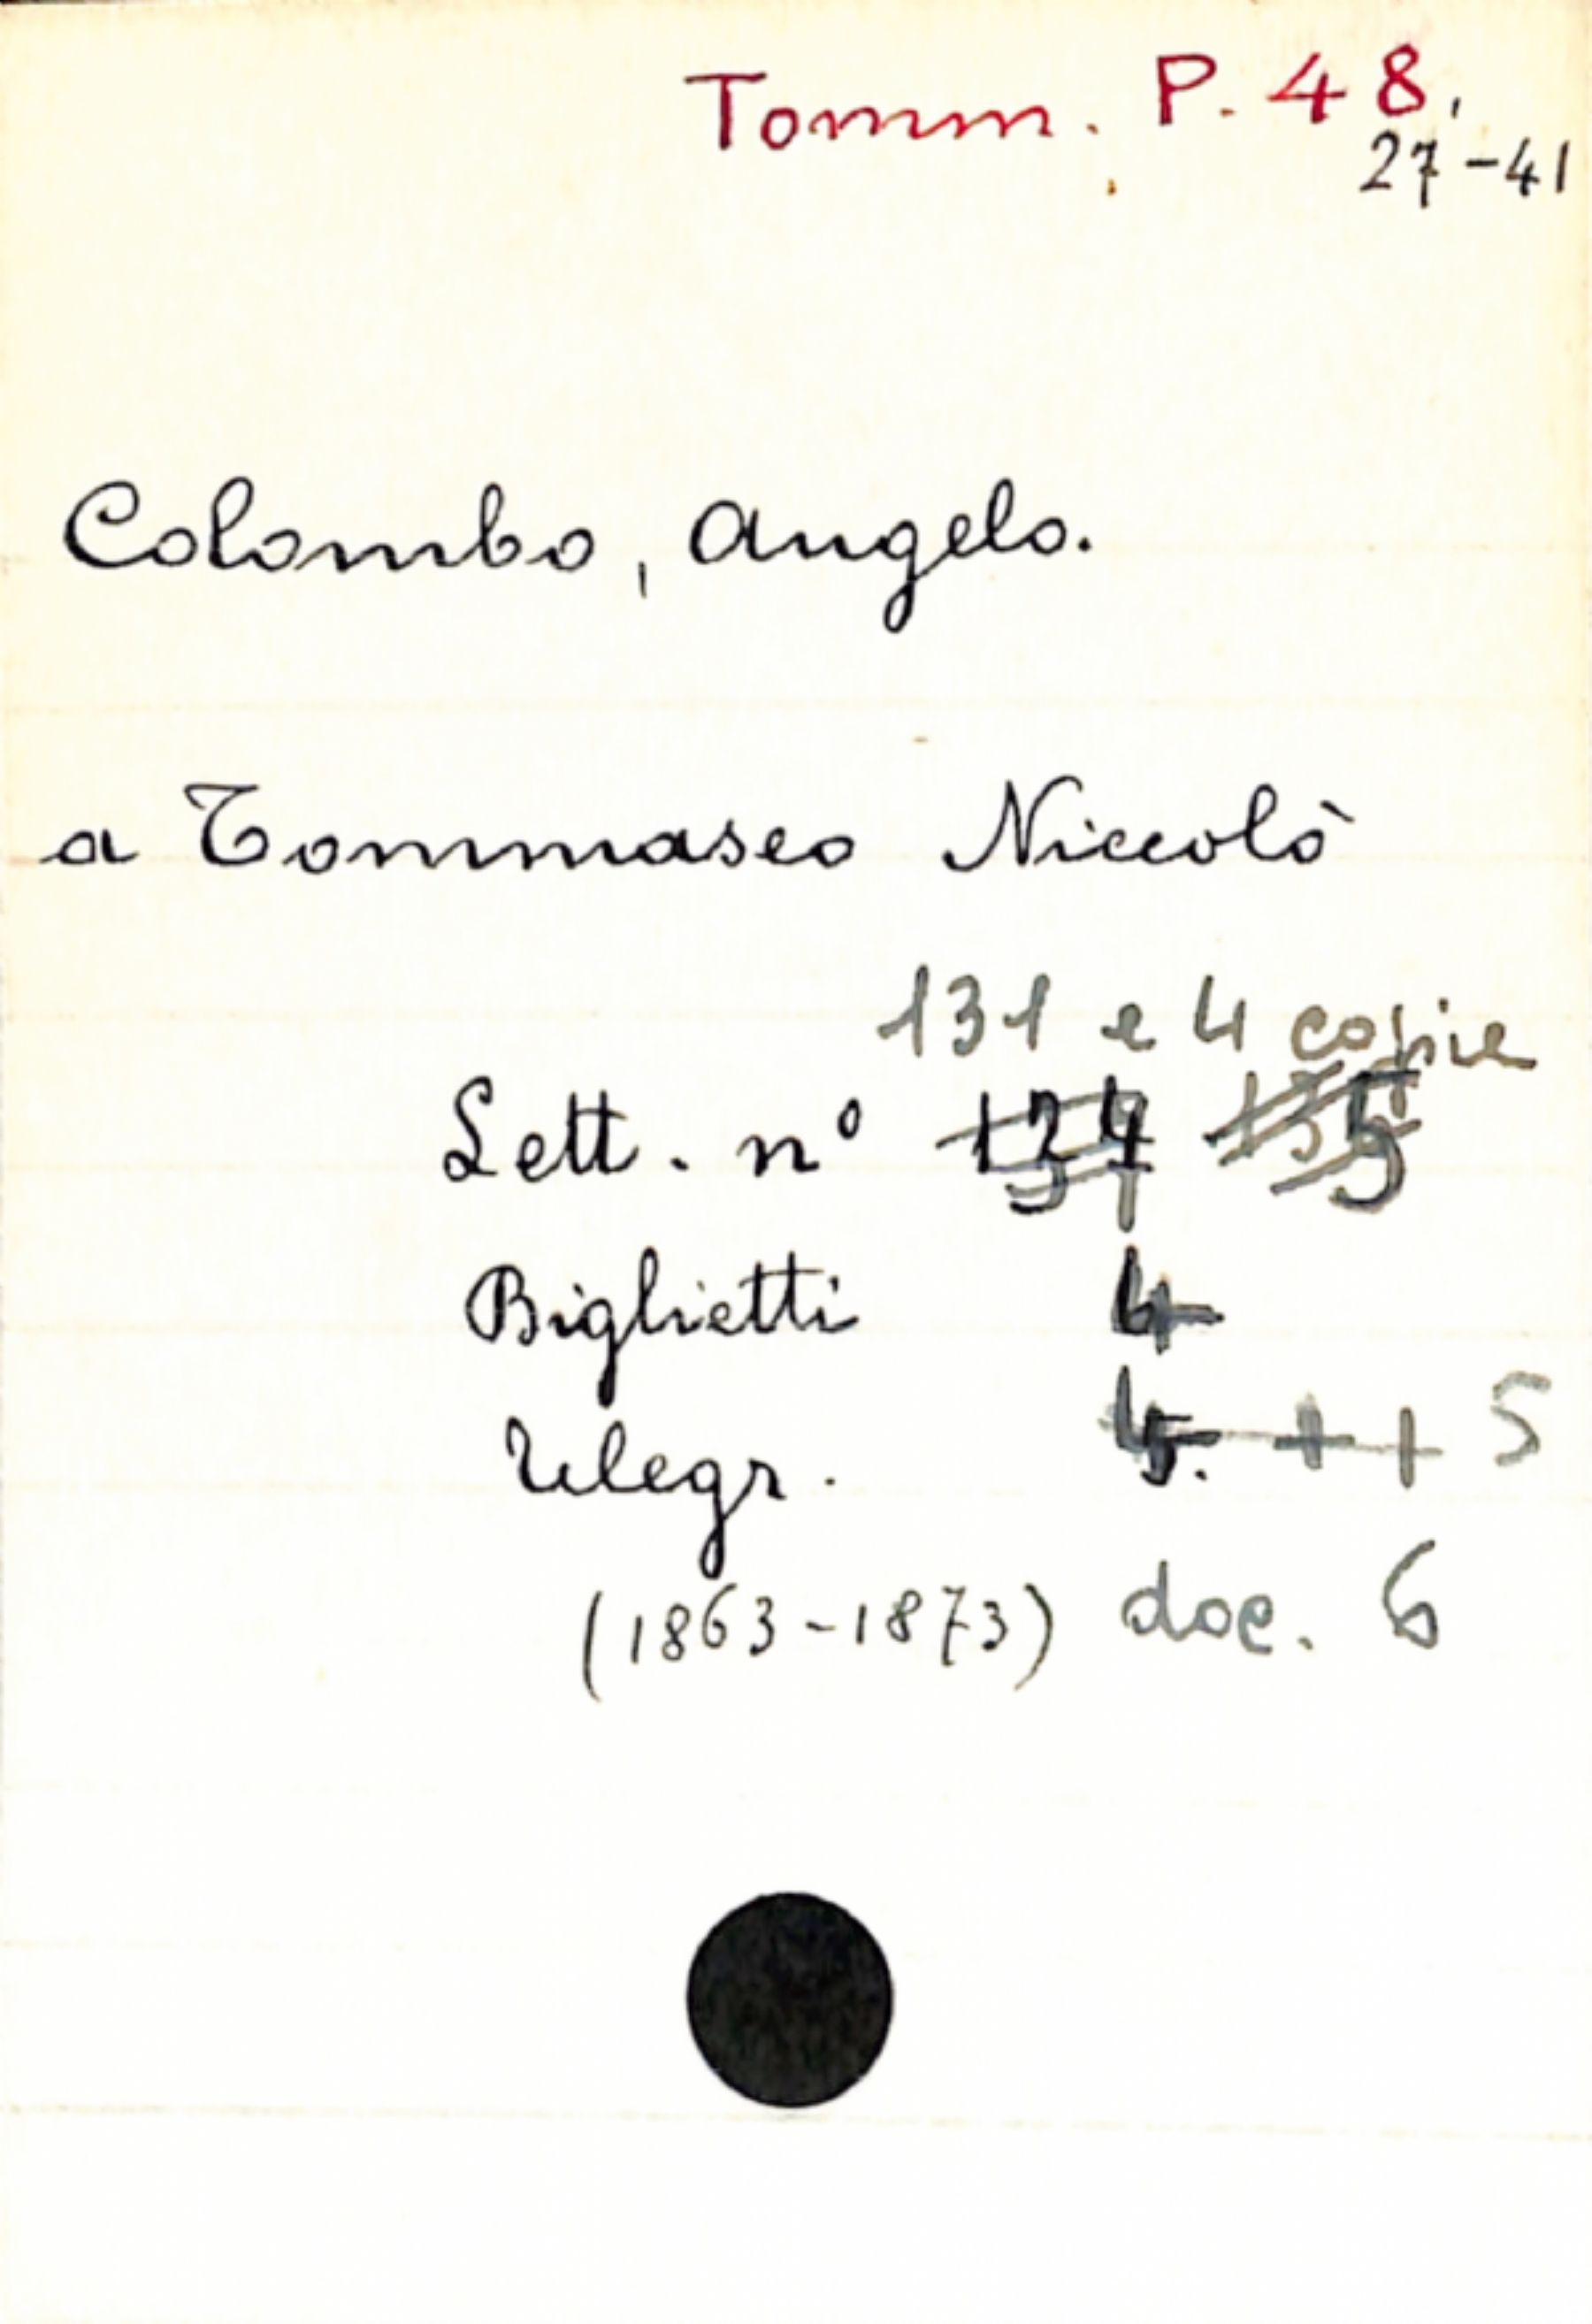 Tomm. P. 48,
27-41
Colombo, Angelo.
a Tommaseo Niccolò
131 e 4 copie
Lett. n°
Biglietti 4
Telegr. 5
(1863-1873) doc. 6